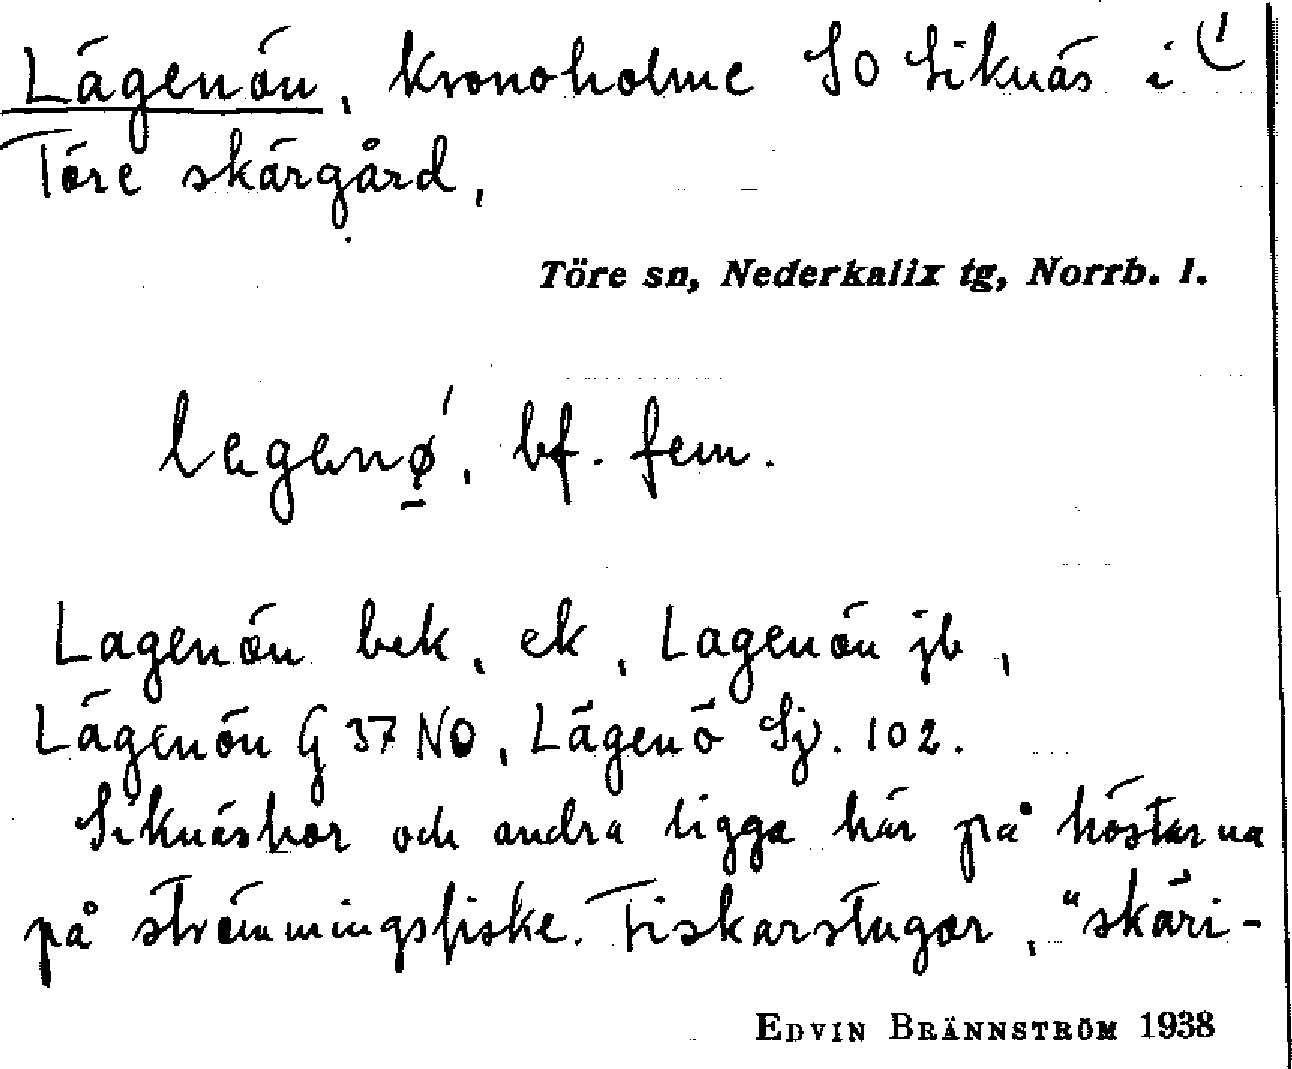 Lägenön, kronoholme SO Siknäs i (1
Töre skärgård,
Töre sn, Nederkalix tg, Norrb. l.
lagenǿ̲, bf. fem.
Lagenön bek, ek, Lagenön jb,
Lägenön G 37 NO, Lägenö Sj. 102.
Siknäsbor och andra ligga här på höstarna
på strömmingsfiske. Fiskarstugor, "skäri-
EDVIN BRÄNNSTRÖM 1938